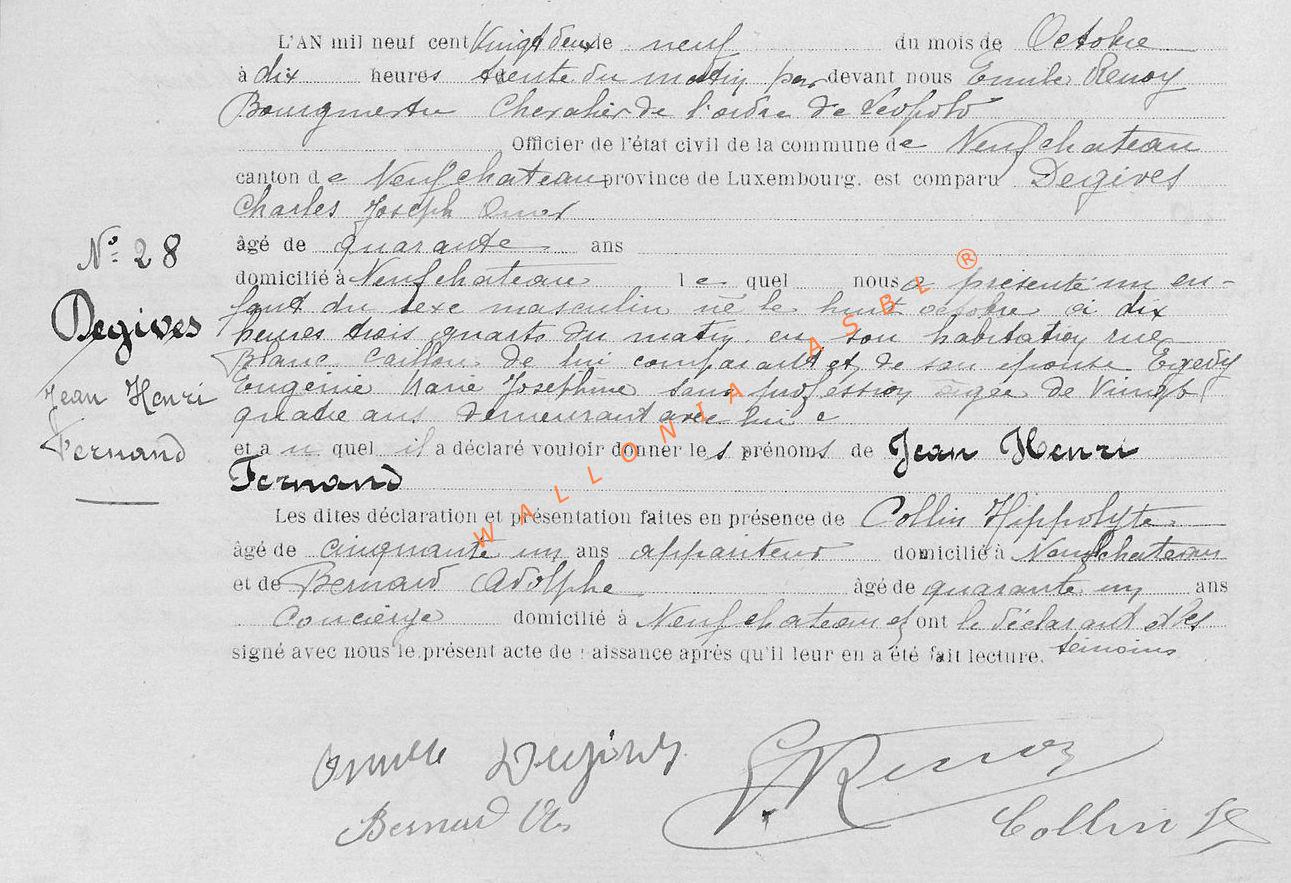 L'AN mil neuf cent Vingt deux le neuf du mois de Octobre
à dix heures trente du matin par devant nous Emile Renoy
Bourgmestre Chevalier de l'ordre de Léopold
Officier de l'état civil de la commune de Neufchateau
canton de Neufchateau province de Luxembourg. est comparu Degives
Charles Joseph Omer
âgé de quarante ans
domicilié à Neufchateau le quel nous a présenté un en-
fant du sexe masculin né le huit octobre à dix
heures trois quarts du matin en son habitation rue
Blanc Caillou de lui comparant et de son épouse
Eugénie Marie Joséphine sans profession âgée de Vingt
quatre ans demeurant avec lui
et au quel il a déclaré vouloir donner les prénoms de Jean Henri
Fernand
Les dites déclaration et présentation faites en présence de Collin Hippolyte
âgé de cinquante un ans appariteur domicilié à Neufchateau
et de Bernard Adolphe âgé de quarante un ans
concierge domicilié à Neufchateau et ont le déclarant et les
témoins
signé avec nous le présent acte de naissance après qu'il leur en a été fait lecture.
N° 28
Degives
Jean Henri
Fernand
WALLONIA ASBL ®
Degives
E. Renoy
Bernard Ad.
Collin H